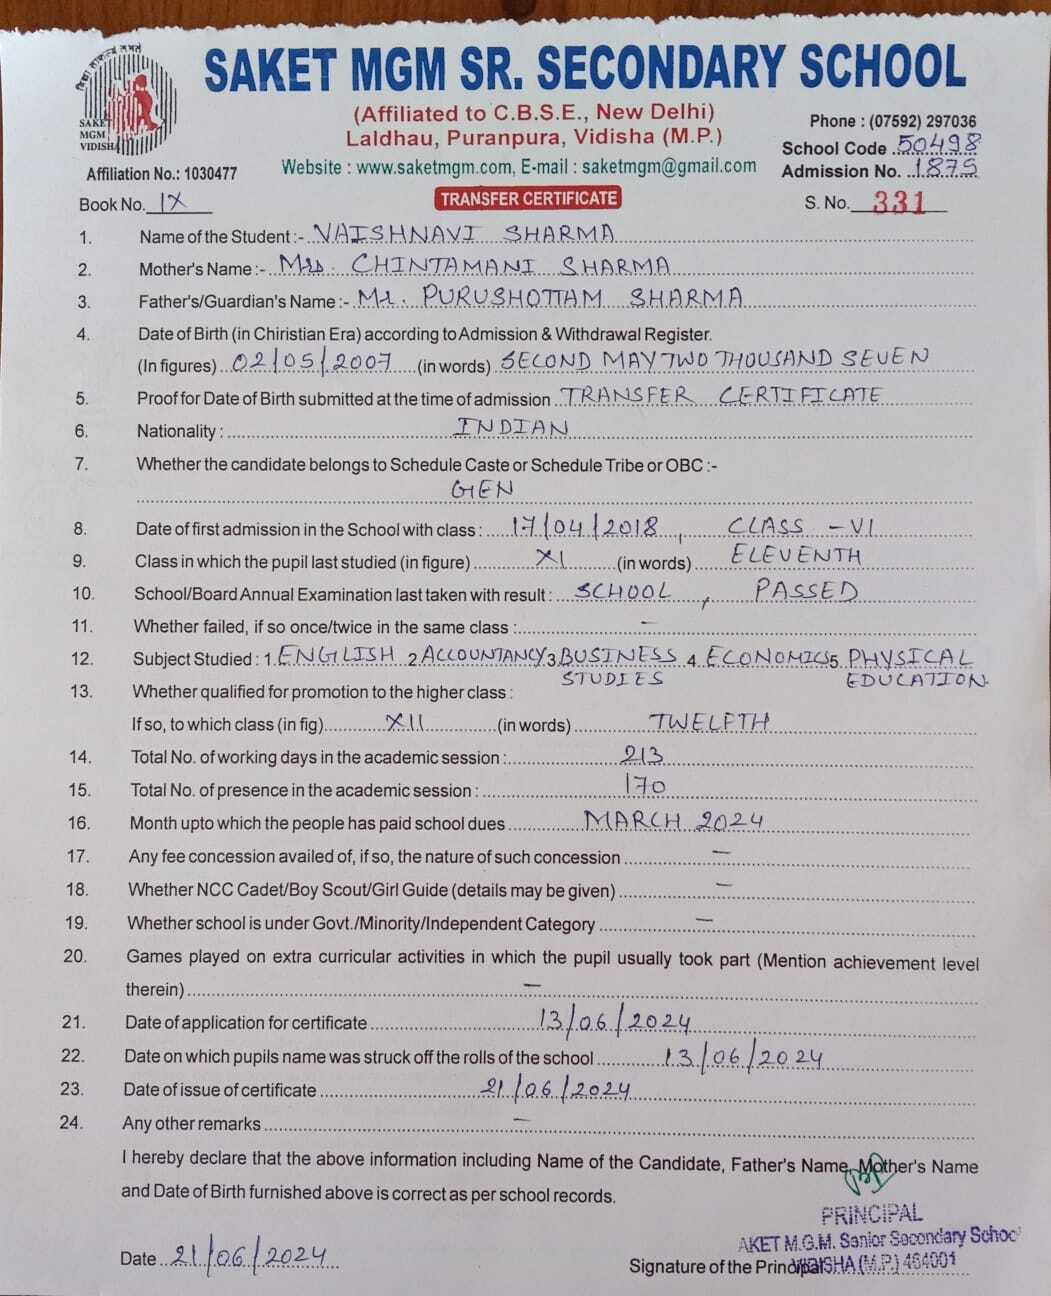 SAKET MGM SR. SECONDARY SCHOOL
(Affiliated to C.B.S.E., New Delhi)
Laldhau, Puranpura, Vidisha (M.P.)
Website : www.saketmgm.com, E-mail : saketmgm@gmail.com
SAKET
MGM
VIDISHA
Affiliation No.: 1030477
Phone : (07592) 297036
School Code 50498
Admission No. 1875
Book No. IX
TRANSFER CERTIFICATE
S. No. 331
1. Name of the Student :- VAISHNAVI SHARMA
2. Mother's Name :- Mrs. CHINTAMANI SHARMA
3. Father's/Guardian's Name :- Mr. PURUSHOTTAM SHARMA
4. Date of Birth (in Chiristian Era) according to Admission & Withdrawal Register.
(In figures) 02/05/2007 (in words) SECOND MAY TWO THOUSAND SEVEN
5. Proof for Date of Birth submitted at the time of admission TRANSFER CERTIFICATE
6. Nationality : INDIAN
7. Whether the candidate belongs to Schedule Caste or Schedule Tribe or OBC :-
GEN
8. Date of first admission in the School with class : 17/04/2018, CLASS - VI
9. Class in which the pupil last studied (in figure) XI (in words) ELEVENTH
10. School/Board Annual Examination last taken with result : SCHOOL, PASSED
11. Whether failed, if so once/twice in the same class : -
12. Subject Studied : 1. ENGLISH 2. ACCOUNTANCY 3. BUSINESS STUDIES 4. ECONOMICS 5. PHYSICAL EDUCATION
13. Whether qualified for promotion to the higher class :
If so, to which class (in fig) XII (in words) TWELFTH
14. Total No. of working days in the academic session : 213
15. Total No. of presence in the academic session : 170
16. Month upto which the people has paid school dues MARCH 2024
17. Any fee concession availed of, if so, the nature of such concession -
18. Whether NCC Cadet/Boy Scout/Girl Guide (details may be given) -
19. Whether school is under Govt./Minority/Independent Category -
20. Games played on extra curricular activities in which the pupil usually took part (Mention achievement level
therein) -
21. Date of application for certificate 13/06/2024
22. Date on which pupils name was struck off the rolls of the school 13/06/2024
23. Date of issue of certificate 21/06/2024
24. Any other remarks -
I hereby declare that the above information including Name of the Candidate, Father's Name, Mother's Name
and Date of Birth furnished above is correct as per school records.
PRINCIPAL
AKET M.G.M. Senior Secondary School
VIDISHA (M.P.) 464001
Date 21/06/2024
Signature of the Principal